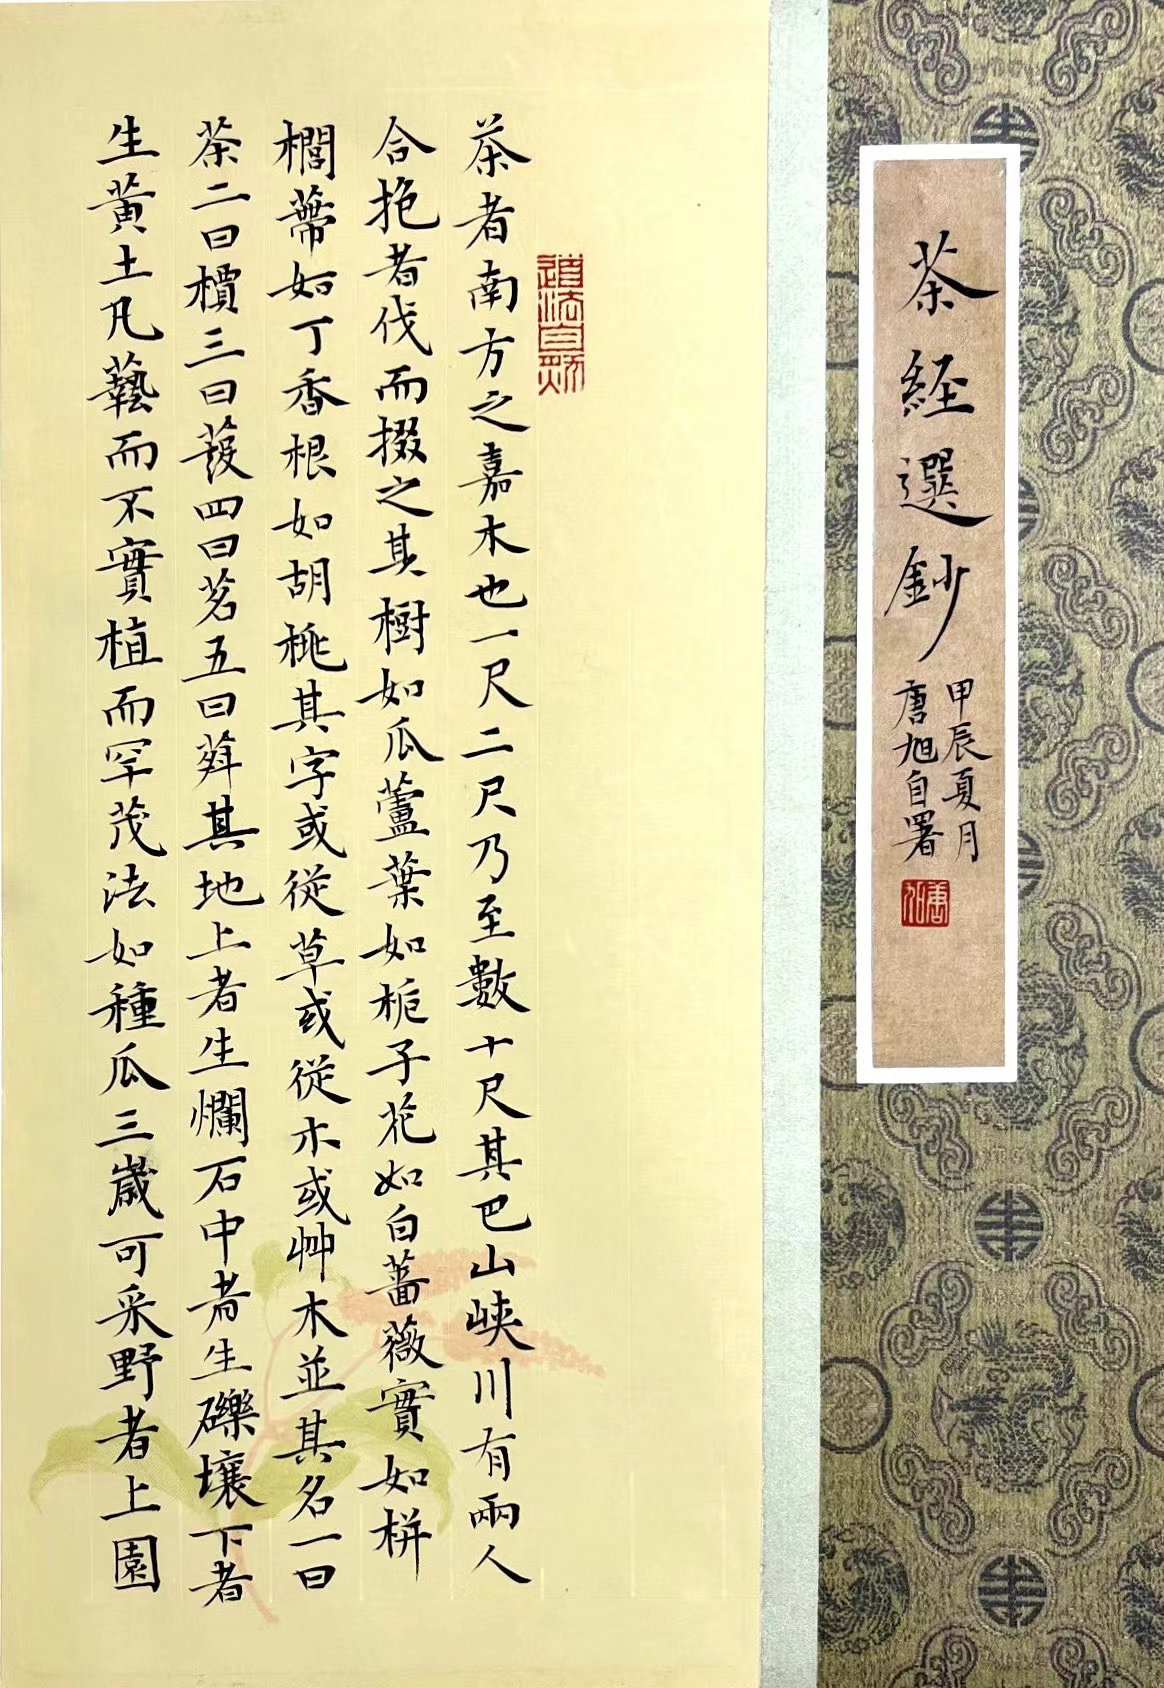 茶經選鈔
甲辰夏月
唐旭自署
唐旭
道法自然
茶者南方之嘉木也一尺二尺乃至數十尺其巴山峽川有兩人
合抱者伐而掇之其樹如瓜蘆葉如梔子花如白薔薇實如栟
櫚蒂如丁香根如胡桃其字或從草或從木或艸木並其名一曰
茶二曰檟三曰蔎四曰茗五曰荈其地上者生爛石中者生礫壤下者
生黃土凡藝而不實植而罕茂法如種瓜三歲可采野者上園